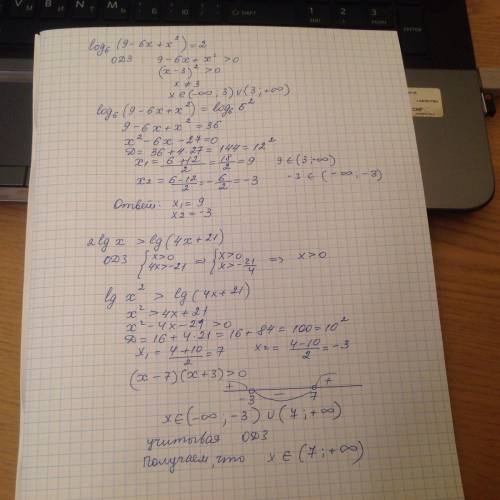 log₆(9-6x+x²)=2
ОДЗ: 9-6x+x²>0
(x-3)²>0
x≠3
x∈(-∞,3)∪(3,+∞)
log₆(9-6x+x²)=log₆6²
9-6x+x²=36
x²-6x-27=0
D=36+4·27=144=12²
x₁=(6+12)/2=18/2=9 9∈(3;+∞)
x₂=(6-12)/2=-6/2=-3 -3∈(-∞,-3)
Ответ: x₁=9
x₂=-3
2lg x>lg(4x+21)
ОДЗ {x>0 4x>-21 ⇒ {x>0 x>-21/4 ⇒ x>0
lg x²>lg(4x+21)
x²>4x+21
x²-4x-21>0
D=16+4·21=16+84=100=10²
x₁=(4+10)/2=7 x₂=(4-10)/2=-3
(x-7)(x+3)>0
+ - +
-3 7
x∈(-∞,-3)∪(7;+∞)
учитывая ОДЗ
получаем, что x∈(7;+∞)